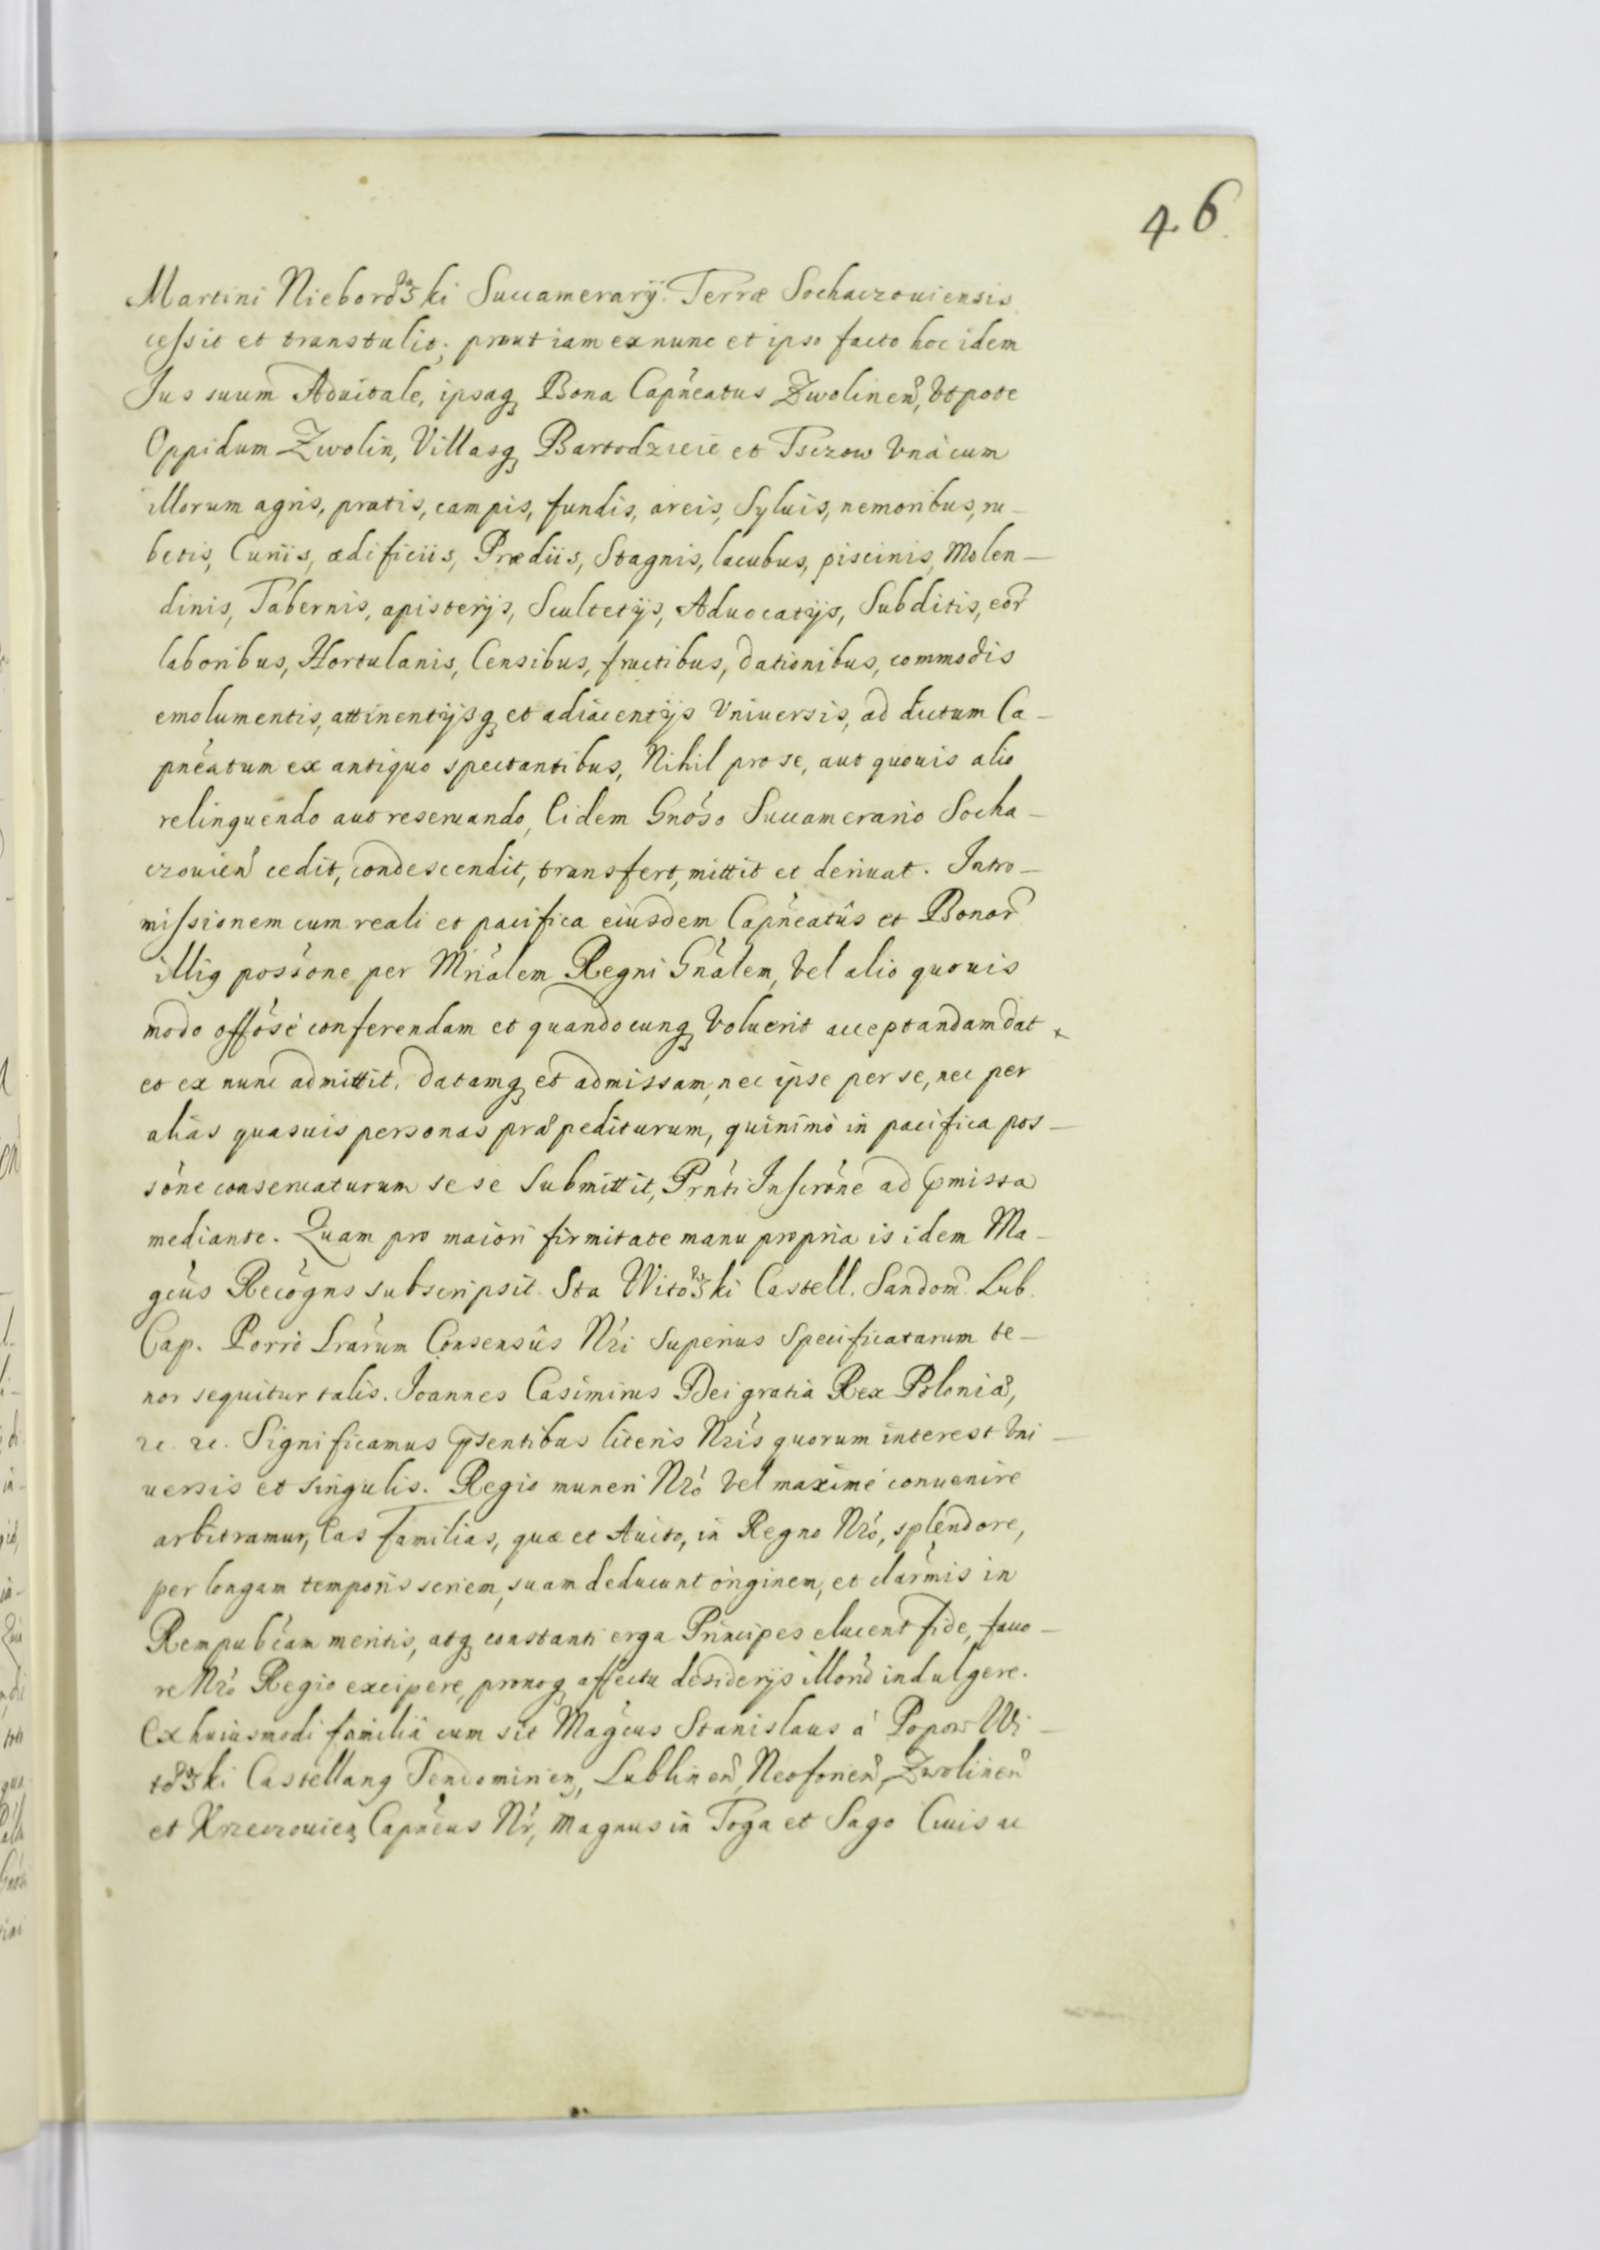 46
Martini Nieborowski Succamerarij Terræ Sochaczouiensis
cessit et transtulit, prout iam ex nunc et ipso facto hoc idem
Jus suum Aduitale, ipsaq₃ Bona Capneatus Zwolinen, Vtpote
Oppidum Zwolin, Villasq₃ Bartodzieie et Tsczow Vnàcum
illorum agris, pratis, campis, fundis, areis, Syluis, nemoribus, ru-
betis, Curiis, ædificiis, Prædiis, Stagnis, lacubus, piscinis, Molen-
dinis, Tabernis, apisterijs, Scultetijs, Aduocatijs, Subditis, eor
laboribus, Hortulanis, Censibus, fructibus, dationibus, commodis
emolumentis, attinentijsq₃ et adiacentijs Vniuersis, ad dictum Ca-
pneatum ex antiquo spectantibus, Nihil pro se, aut quouis alio
relinquendo aut reseruando, Eidem Gnoso Succamerario Socha-
czouien cedit, condescendit, transfert, mittit et deriuat. Intro-
missionem cum reali et pacifica eiusdem Capneatûs et Bonor
illig possone per Mrialem Regni Gnalem, Vel alio quouis
modo offose conferendam et quandocunq₃ Voluerit acceptandam dat
et ex nunc admittit, datamq₃ et admissam, nec ipse per se, nec per
alias quasuis personas præpediturum, quinimò in pacifica pos-
sone conseruaturum se se Submittit, Prnti Inscrone ad pmissa
mediante. Quam pro maiori firmitate manu propria is idem Ma-
gcus Recogns subscripsit. Sta Witowski Castell. Sandom. Lub.
Cap. Porrò Lrarum Consensûs Nri Superius Specificatarum te-
nor sequitur talis. Joannes Casimirus Dei gratia Rex Poloniæ,
rc. rc. Significamus psentibus literis Nris quorum interest Vni-
uersis et singulis. Regio muneri Nro Vel maximè conuenire
arbitramur, Eas familias, quæ et Auito, in Regno Nro, splendore,
per longam temporis seriem, suam deducunt originem, et clarmis in
Rempubcam meritis, atq₃ constanti erga Principes elucent fide, fauo-
re Nro Regio excipere, pronoq₃ affectu desiderijs illorum indulgere.
Ex huiusmodi familiâ cum sit Magcus Stanislaus à Popow Wi-
towski Castellang Sendomirien, Lublinen, Neoforien, Zwolinen
et Krzeczouien Capneus Nr, Magnus in Toga et Sago Ciuis ac